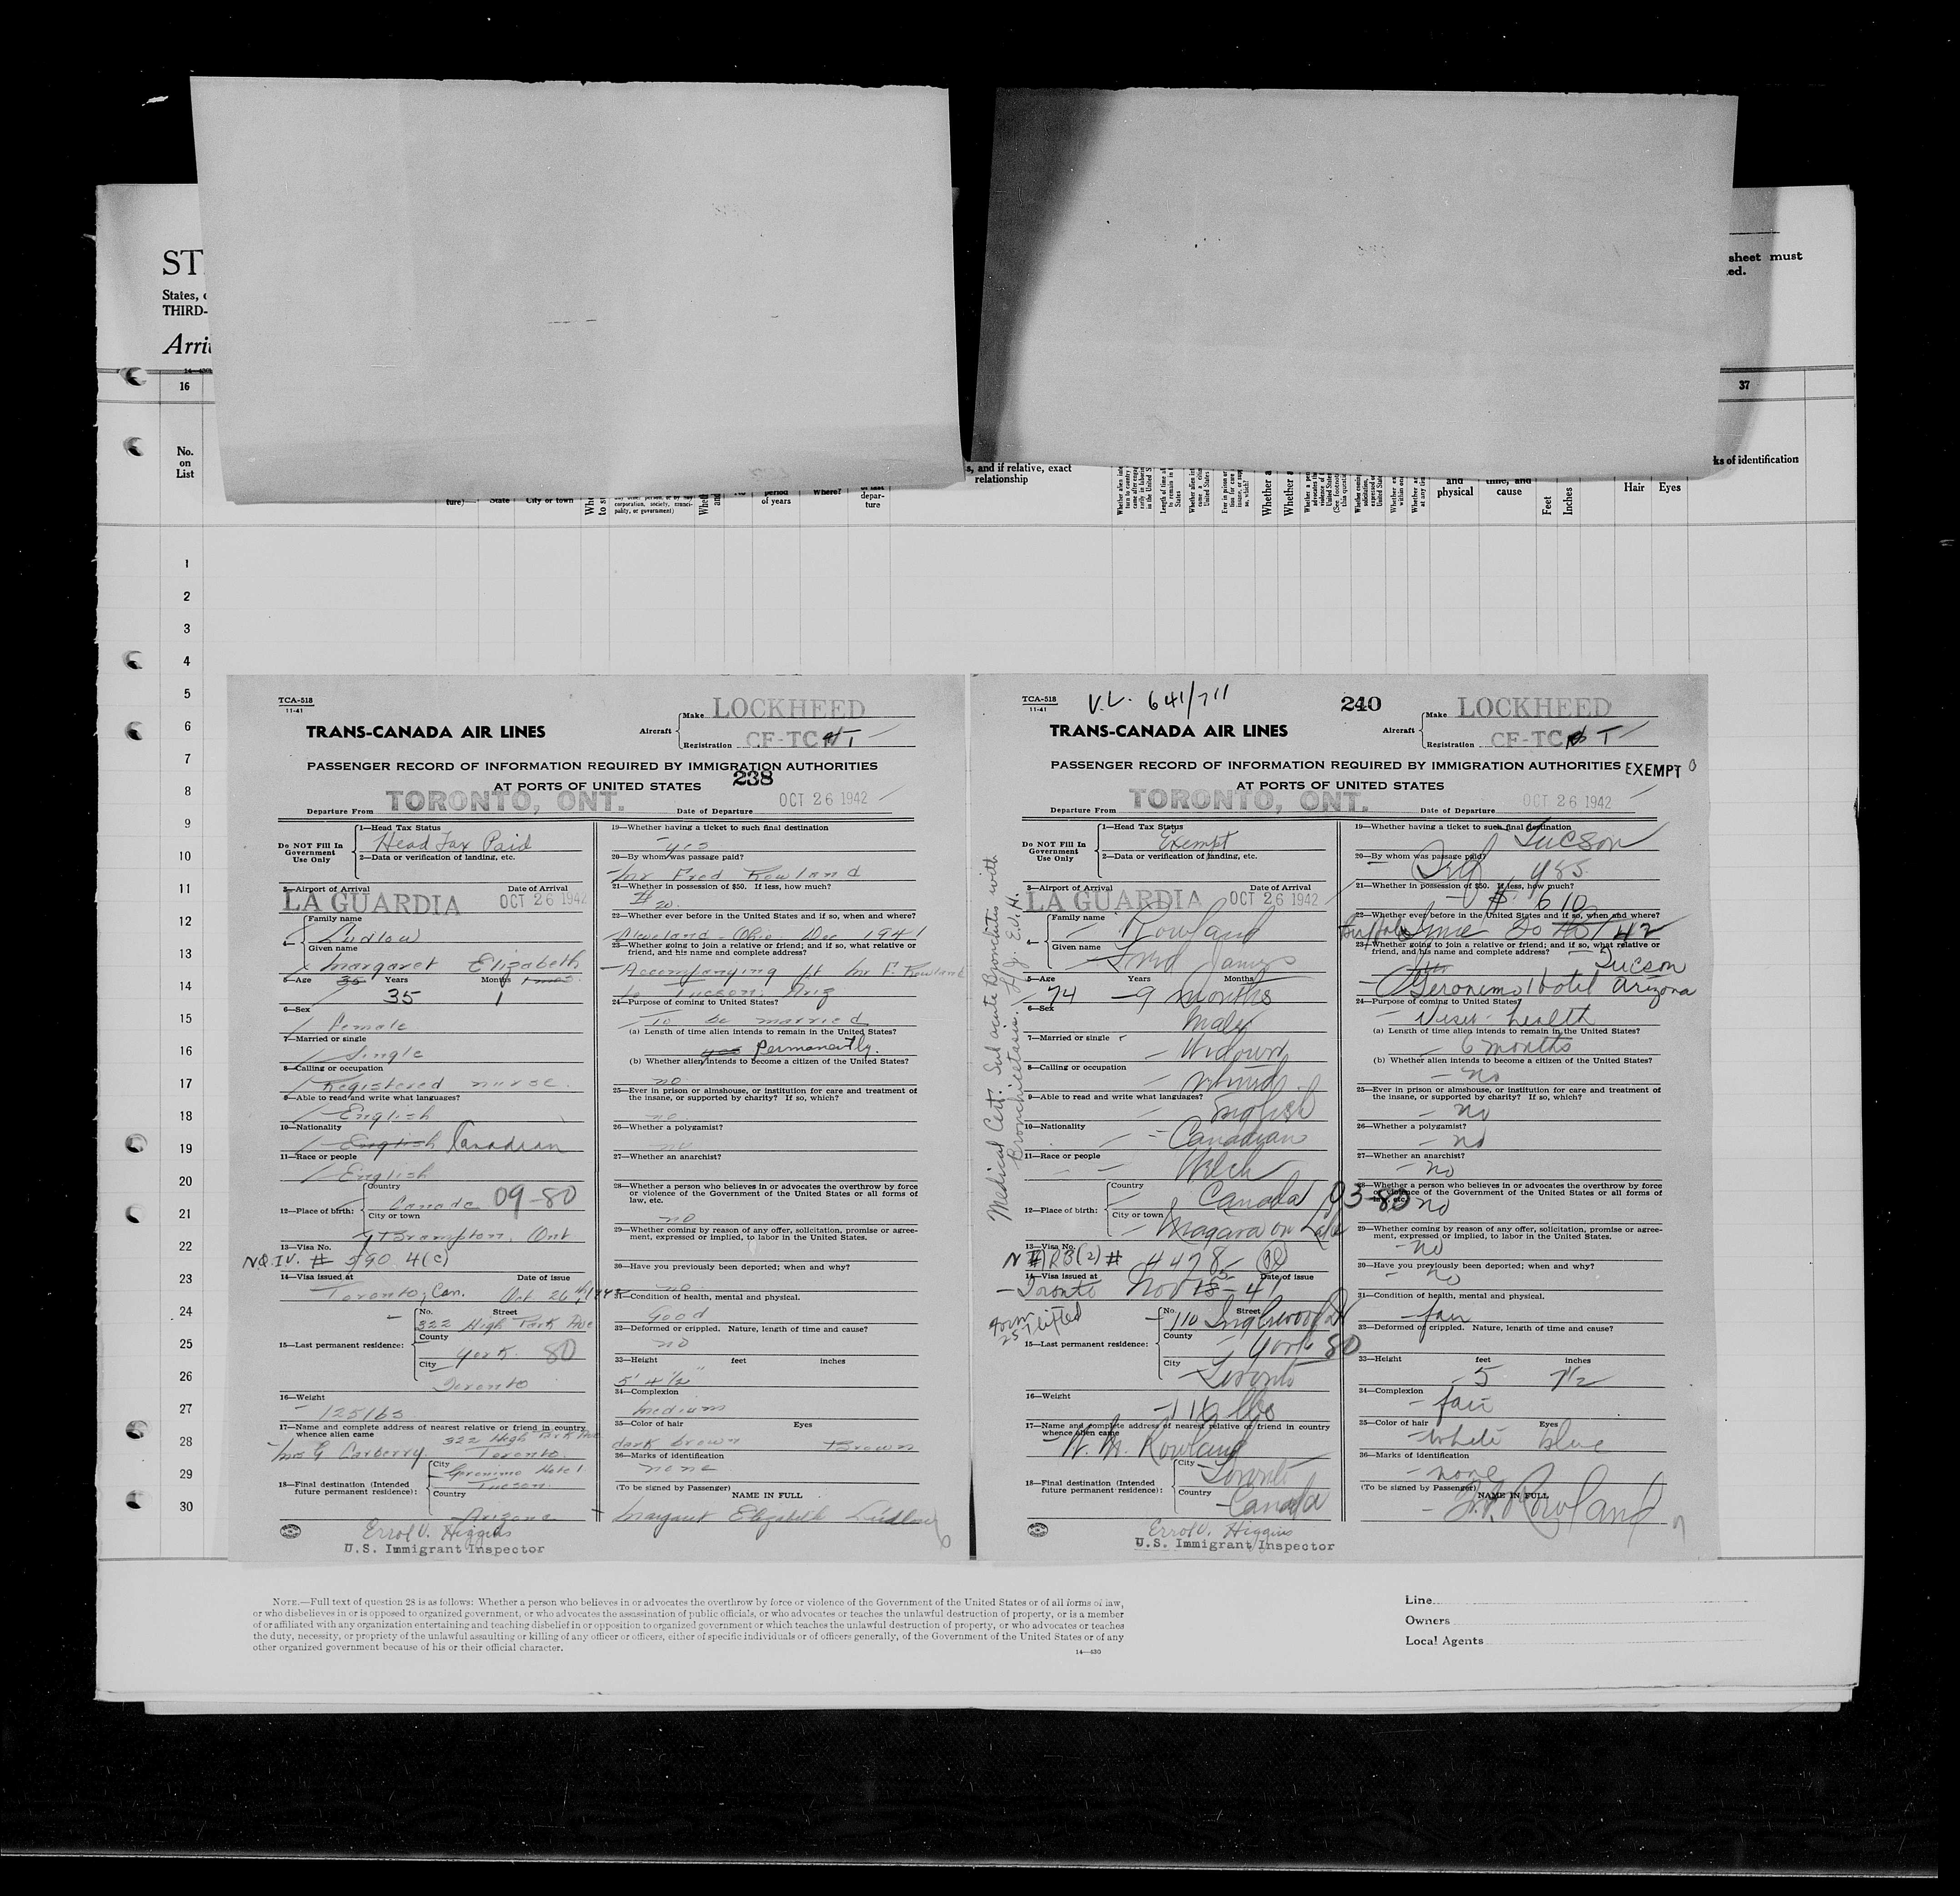 ST
States, 
THIRD-
Arri
14—430
16
No.
on
List
ture)
State
City or town
corporation, society, munici-
pality, or government)
period
of years
Where?
depar-
ture
s, and if relative, exact
relationship
and
physical
time, and
cause
Feet
Inches
Hair
Eyes
sheet must
ed.
37
ks of identification
1
2
3
4
5
6
7
8
9
10
11
12
13
14
15
16
17
18
19
20
21
22
23
24
25
26
27
28
29
30
TCA-518
11-41
TRANS-CANADA AIR LINES
Aircraft
Make LOCKHEED
Registration CF-TC T
PASSENGER RECORD OF INFORMATION REQUIRED BY IMMIGRATION AUTHORITIES
AT PORTS OF UNITED STATES
238
Departure From TORONTO, ONT.
Date of Departure OCT 26 1942
Do NOT Fill In
Government
Use Only
1—Head Tax Status
Head Tax Paid
2—Data or verification of landing, etc.
3—Airport of Arrival
LA GUARDIA
Date of Arrival
OCT 26 1942
4—
Family name
Ludlow
Given name
Margaret Elizabeth
5—Age 35 Years Months
35 1
6—Sex
Female
7—Married or single
Single
8—Calling or occupation
Registered nurse.
9—Able to read and write what languages?
English
10—Nationality
English Canadian
11—Race or people
English
12—Place of birth:
Country
Canada 09-80
City or town
Brampton, Ont
13—Visa No.
N.Q.I.V. # 590 4(c)
14—Visa issued at Date of issue
Toronto, Can. Oct. 26th 1942
15—Last permanent residence:
No. Street
322 High Park Ave
County
York 80
City
Toronto
16—Weight
125 lbs
17—Name and complete address of nearest relative or friend in country
whence alien came
322 High Park Ave
Mrs G Carberry Toronto.
18—Final destination (Intended
future permanent residence):
City
Geronimo Hotel
Tucson.
Country
Arizona
Errol V. Higgins
U.S. Immigrant Inspector
19—Whether having a ticket to such final destination
yes
20—By whom was passage paid?
Mr Fred Rowland
21—Whether in possession of $50. If less, how much?
$20.
22—Whether ever before in the United States and if so, when and where?
Cleveland - Ohio. Dec 1941
23—Whether going to join a relative or friend; and if so, what relative or
friend, and his name and complete address?
Accompanying Mr F. Rowland
to Tucson, Ariz
24—Purpose of coming to United States?
To be married
(a) Length of time alien intends to remain in the United States?
yes Permanently.
(b) Whether alien intends to become a citizen of the United States?
no.
25—Ever in prison or almshouse, or institution for care and treatment of
the insane, or supported by charity? If so, which?
no
26—Whether a polygamist?
no
27—Whether an anarchist?
28—Whether a person who believes in or advocates the overthrow by force
or violence of the Government of the United States or all forms of
law, etc.
no
29—Whether coming by reason of any offer, solicitation, promise or agree-
ment, expressed or implied, to labor in the United States.
30—Have you previously been deported; when and why?
no.
31—Condition of health, mental and physical.
Good
32—Deformed or crippled. Nature, length of time and cause?
no
33—Height feet inches
5' 4 1/2"
34—Complexion
Medium
35—Color of hair Eyes
dark brown Brown
36—Marks of identification
none
(To be signed by Passenger)
NAME IN FULL
Margaret Elizabeth Ludlow
TCA-518
11-41
V.L. 641/711
240
TRANS-CANADA AIR LINES
Aircraft
Make LOCKHEED
Registration CF-TC T
PASSENGER RECORD OF INFORMATION REQUIRED BY IMMIGRATION AUTHORITIES
EXEMPT
AT PORTS OF UNITED STATES
Departure From TORONTO, ONT.
Date of Departure OCT 26 1942
Medical Cert: Sub acute Bronchitis with
Bronchiectasis. E.V.H.
Do NOT Fill In
Government
Use Only
1—Head Tax Status
Exempt
2—Data or verification of landing, etc.
3—Airport of Arrival
LA GUARDIA
Date of Arrival
OCT 26 1942
4—
Family name
Rowland
Given name
Fred James
5—Age Years Months
74 - 9 months
6—Sex
Male
7—Married or single
Widower
8—Calling or occupation
retired
9—Able to read and write what languages?
English
10—Nationality
Canadian
11—Race or people
Welch
12—Place of birth:
Country
Canada 03-80
City or town
Niagara on Lake
13—Visa No.
# 4478
14—Visa issued at Date of issue
Toronto Nov 41
Form
257 lifted
15—Last permanent residence:
No. Street
110 Inglewood Dr
County
York 80
City
Toronto
16—Weight
116 lbs
17—Name and complete address of nearest relative or friend in country
whence alien came
Rowland
18—Final destination (Intended
future permanent residence):
City
Toronto
Country
Canada
Errol V. Higgins
U.S. Immigrant Inspector
19—Whether having a ticket to such final destination
Tucson
20—By whom was passage paid?
Self
21—Whether in possession of $50. If less, how much?
$ 610
22—Whether ever before in the United States and if so, when and where?
Buffalo June 42
23—Whether going to join a relative or friend; and if so, what relative or
friend, and his name and complete address?
Tucson
Geronimo Hotel Arizona
24—Purpose of coming to United States?
health
(a) Length of time alien intends to remain in the United States?
6 months
(b) Whether alien intends to become a citizen of the United States?
no
25—Ever in prison or almshouse, or institution for care and treatment of
the insane, or supported by charity? If so, which?
no
26—Whether a polygamist?
no
27—Whether an anarchist?
no
28—Whether a person who believes in or advocates the overthrow by force
or violence of the Government of the United States or all forms of
law, etc.
no
29—Whether coming by reason of any offer, solicitation, promise or agree-
ment, expressed or implied, to labor in the United States.
no
30—Have you previously been deported; when and why?
no
31—Condition of health, mental and physical.
fair
32—Deformed or crippled. Nature, length of time and cause?
33—Height feet inches
5 7 1/2
34—Complexion
fair
35—Color of hair Eyes
White blue
36—Marks of identification
none
(To be signed by Passenger)
NAME IN FULL
F. J. Rowland
NOTE.—Full text of question 28 is as follows: Whether a person who believes in or advocates the overthrow by force or violence of the Government of the United States or of all forms of law,
or who disbelieves in or is opposed to organized government, or who advocates the assassination of public officials, or who advocates or teaches the unlawful destruction of property, or is a member
of or affiliated with any organization entertaining and teaching disbelief in or opposition to organized government or which teaches the unlawful destruction of property, or who advocates or teaches
the duty, necessity, or propriety of the unlawful assaulting or killing of any officer or officers, either of specific individuals or of officers generally, of the Government of the United States or of any
other organized government because of his or their official character.
14—430
Line
Owners
Local Agents